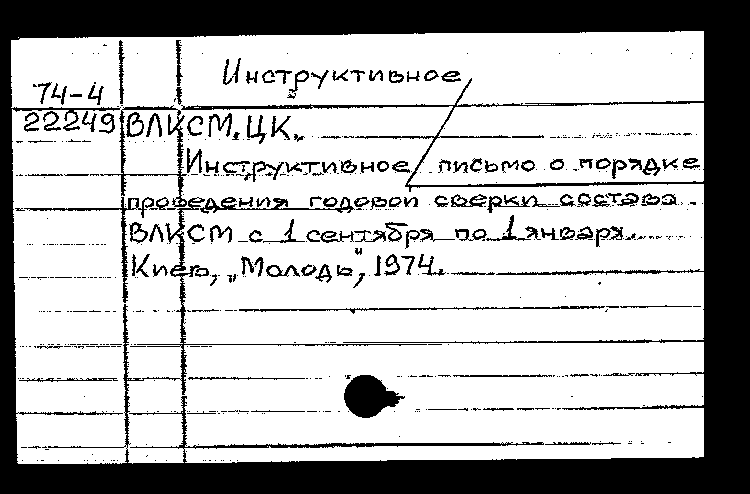 Инструктивное
74-4
22249 ВЛКСМ. ЦК.
Инструктивное письмо о порядке
проведения годовой сверки состава
ВЛКСМ с 1 сентября по 1 января.
Киев, „Молодь", 1974.